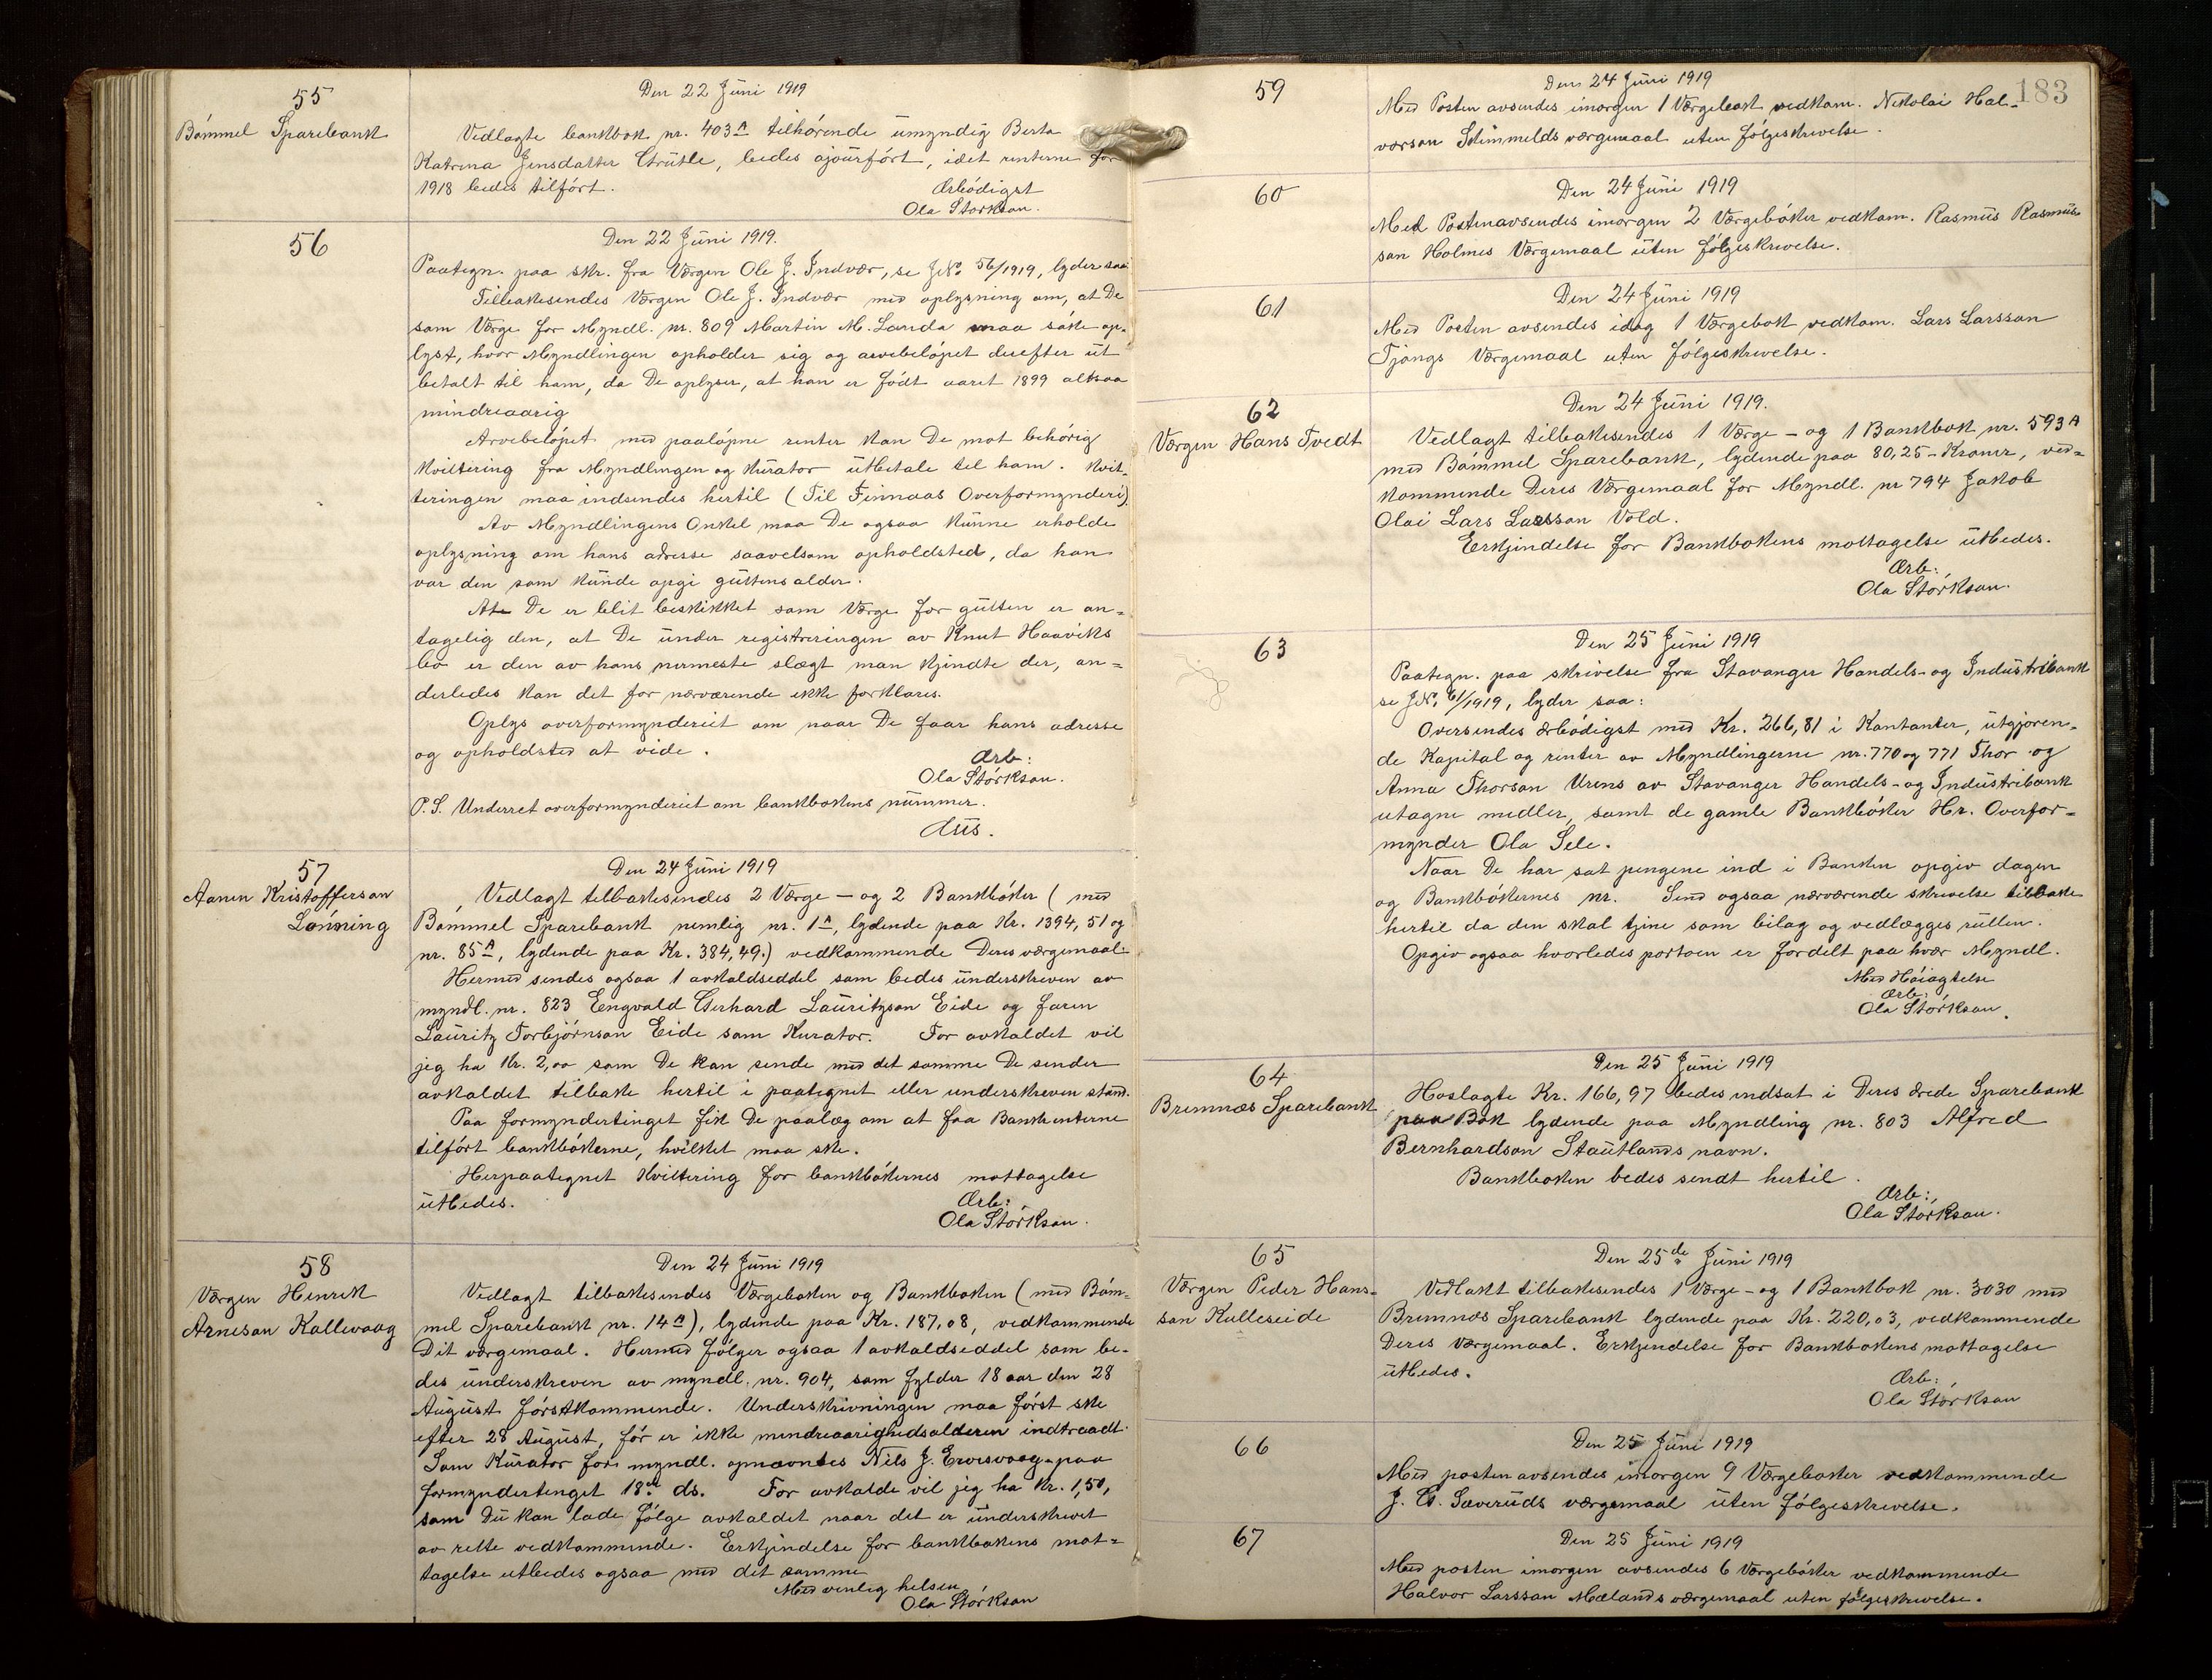 55
Bømmel Sparebank
Den 22 Juni 1919
Vedlagte bankbok nr. 403A tilhørende umyndig Berta
Katrina Jensdatter Grutle, bedes ajourført, idet renterne for
1918 bedes tilført.
Ærbødigst
Ola Størkson.
56
Den 22 Juni 1919.
Paategn. paa skr. fra Værgen Ole J. Indvær, se J.No. 56/1919, lyder saa
Tilbakesendes Værgen Ole J. Indvær med oplysning om, at De
som Værge for Myndl. nr. 809 Martin M. Landa maa søke op-
lyst, hvor Myndlingen opholder sig og arvebeløpet derefter ut
betalt til ham, da De oplyser, at han er født aaret 1899 altsaa
mindreaarig
Arvebeløpet med paaløpne renter kan De mot behørig
kvittering fra Myndlingen og Kurator utbetale til ham. Kvit-
teringen maa indsendes hertil (Til Finnaas Overformynderi).
Av Myndlingens Onkel maa De ogsaa kunne erholde
oplysning om hans adresse saavelsom opholdsted, da han
var den som kunde opgi guttens alder.
At De er blit beskikket som Værge for gutten er an-
tagelig den, at De under registreringen av Knut Haaviks
bo er den av hans nermeste slægt man kjendte der, an-
derledes kan det for nærværende ikke forklares.
Oplys overformynderiet om naar De faar hans adresse
og opholdsted at vide.
Ærb:
Ola Størkson.
P.S. Underret overformynderiet om bankbokens nummer.
dus.
57
Aamen Kristofferson
Lønning
Den 24 Juni 1919
Vedlagt tilbakesendes 2 Værge- og 2 Bankbøker (med
Bømmel Sparebank nemlig nr. 1A, lydende paa Kr. 1394,51 og
nr. 85A, lydende paa Kr. 384,49.) vedkommende Deres værgemaal.
Hermed sendes ogsaa 1 avkaldseddel som bedes underskreven av
myndl. nr. 823 Engvald Gerhard Lauritzson Eide og faren
Lauritz Torbjørnson Eide som Kurator. For avkaldet vil
jeg ha Kr. 2,00 som De kan sende med det samme De sender
avkaldet tilbake hertil i paategnet eller underskreven stand.
Paa formyndertinget fik De paalæg om at faa Bankrenterne
tilført bankbøkerne, hvilket maa ske.
Herpaategnet Kvittering for bankbøkernes mottagelse
utbedes.
Ærb:
Ola Størkson.
58
Værgen Henrik
Arneson Kallevaag
Den 24 Juni 1919
Vedlagt tilbakesendes Værgeboken og Bankboken (med Bøm-
mel Sparebank nr. 14A), lydende paa Kr. 187,08, vedkommende
Dit værgemaal. Hermed følger ogsaa 1 avkaldseddel som be-
des underskreven av myndl. nr. 904, som fylder 18 aar den 28
August førstkommende. Underskrivningen maa først ske
efter 28 August, før er ikke mindreaarighedsalderen indtraadt.
Som Kurator for myndl. opnævntes Nils J. Ervesvaag paa
formyndertinget 18de ds. For avkalde vil jeg ha Kr. 1,50,
som Du kan lade følge avkaldet naar det er underskrevet
av rette vedkommende. Erkjendelse for bankbokens mot-
tagelse utbedes ogsaa med det samme
Med venlig helsen
Ola Størkson
183
59
Den 24 Juni 1919
Med Posten avsendes imorgen 1 Værgebok vedkom. Nikolai Hal-
vorson værgemaal uten følgeskrivelse.
60
Den 24 Juni 1919
Med Posten avsendes imorgen 2 Værgebøker vedkom. Rasmus Rasmus-
son Holmes Værgemaal uten følgeskrivelse.
61
Den 24 Juni 1919
Med Posten avsendes idag 1 Værgebok vedkom. Lars Larsson
Tjongs Værgemaal uten følgeskrivelse.
62
Værgen Hans Tvedt
Den 24 Juni 1919.
Vedlagt tilbakesendes 1 Værge- og 1 Bankbok nr. 593A
med Bømmel Sparebank, lydende paa 80,25 Kroner, ved-
kommende Deres Værgemaal for Myndl. nr 794 Jakob
Olai Lars Larsson Vold.
Erkjendelse for Bankbokens mottagelse utbedes.
Ærb:
Ola Størkson.
63
Den 25 Juni 1919
Paategn. paa skrivelse fra Stavanger Handels- og Industribank
se J.No. 61/1919, lyder saa:
Oversendes ærbødigst med Kr. 266,81 i Kontanter, utgjøren-
de Kapital og renter av Myndlingerne nr. 770 og 771 Thor og
Anna Thorson Urens av Stavanger Handels- og Industribank
utagne medler, samt de gamle Bankbøker Hr. Overfor-
mynder Ola Sele.
Naar De har sat pengene ind i Banken opgiv dagen
og Bankbøkernes nr. Send ogsaa nærværende skrivelse tilbake
hertil da den skal tjene som bilag og vedlægges rullen.
Opgiv ogsaa hvorledes portoen er fordelt paa hver Myndl.
Med Høiagtelse
Ærb:
Ola Størkson.
64
Bremnæs Sparebank
Den 25 Juni 1919
Hoslagte Kr. 166,97 bedes indsat i Deres ærede Sparebank
paa Bok lydende paa Myndling nr. 803 Alfred
Bernhardson Stautlands navn.
Bankboken bedes sendt hertil.
Ærb:
Ola Størkson.
65
Værgen Peder Hans-
son Kulleseide
Den 25de Juni 1919
Vedlakt tilbakesendes 1 Værge- og 1 Bankbok nr. 3030 med
Bremnæs Sparebank lydende paa Kr. 220,03, vedkommende
Deres Værgemaal. Erkjendelse for Bankbokens mottagelse
utbedes.
Ærb:
Ola Størkson
66
Den 25 Juni 1919
Med posten avsendes imorgen 9 Værgebøker vedkommende
J. G. Sæveruds værgemaal uten følgeskrivelse.
67
Den 25 Juni 1919
Med posten imorgen avsendes 6 Værgebøker vedkommende
Halvor Larsson Mælands værgemaal uten følgeskrivelse.